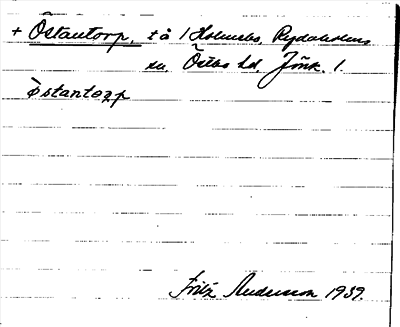 + Östantorp, t å / Holmsbo, Rydaholms
sn. Östbo hd. Jönk. l.
östantorp
Fritz Andersson 1939.